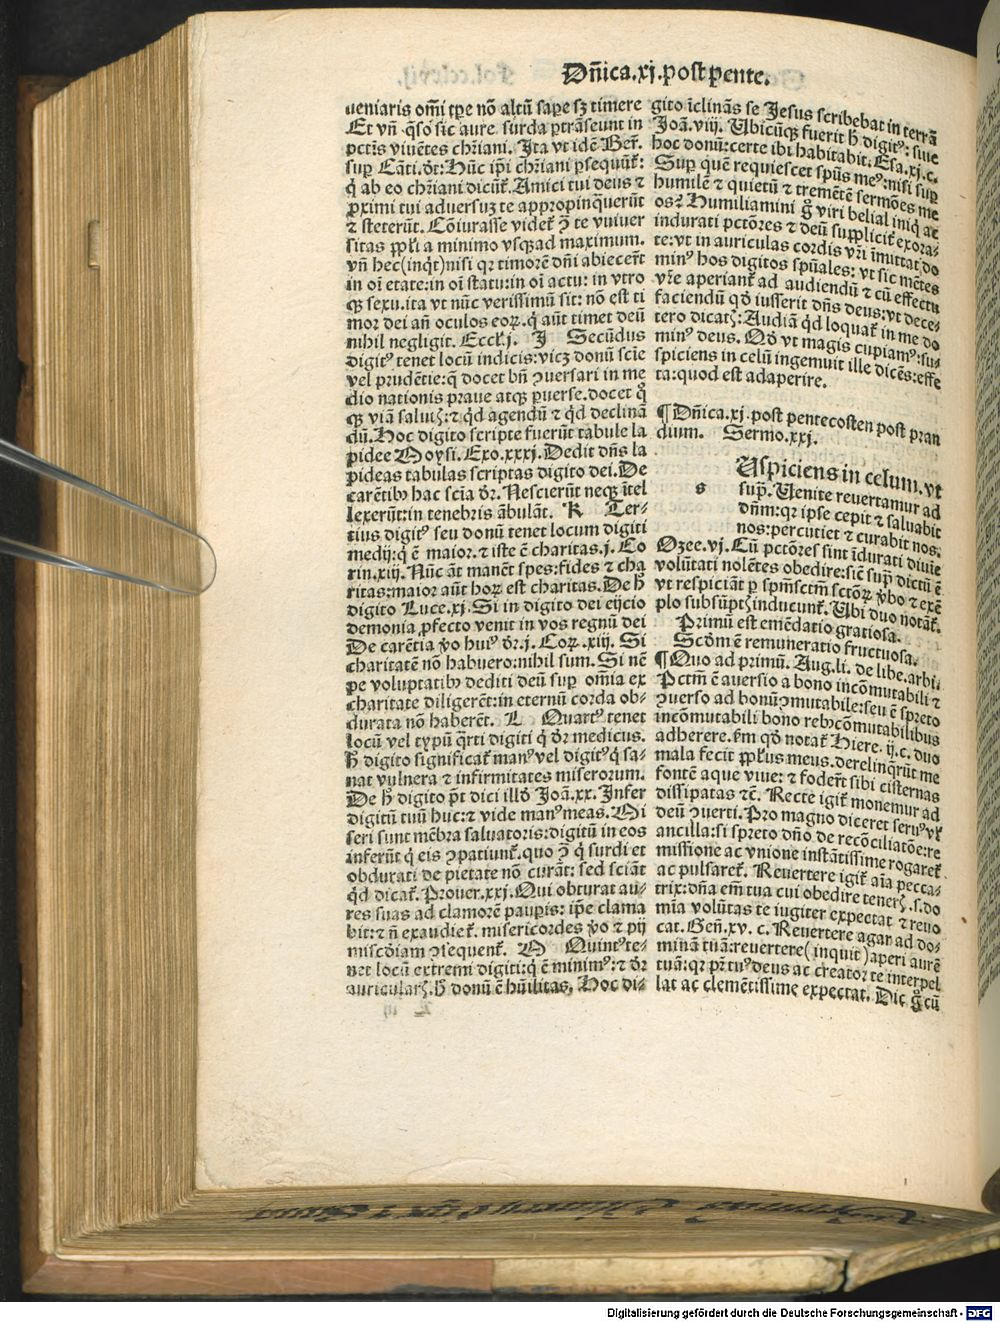 Dn̄ica.xj.post pente.
ueniaris om̄i tꝑe nō altū saꝑe sꝫ timere
Et vn̄ q̄so sic aure surda ꝑtrāseunt in
pctīs viuētes chr̄iani. Ita vt idē Ber̄.
suꝑ Cāti.dt̄: Hūc ip̄i chr̄iani ꝑsequūt᷑:
q̇ ab eo chr̄iani dicūt᷑. Amici tui deus ⁊
ꝓximi tui aduersuꝫ te appropinq̄uerūt
⁊ steterūt. Cōiurasse videt᷑ ꝯ̄ te vniuer
sitas pp̄li a minimo vsqꝫad maximum.
vn̄ hec(inq̇t)nisi qꝛ timorē dn̄i abiecer̄t
in oī etate:in oī statu:in oī actu: in vtro
qꝫ sexu.ita vt nūc verissimū sit: nō est ti
mor dei an̄ oculos eoꝝ.q̇ aūt timet deū
nihil negligit. Eccl̄.j. J Secūdus
digitꝰ tenet locū indicis:vicꝫ donū scie
vel prudētie:q̄ docet bn̄ ꝯuersari in me
dio nationis praue atqꝫ ꝑuerse.docet q̊
qꝫ viā salutꝭ:⁊ q̇d agendū ⁊ q̇d declinā
dū. Hoc digito scripte fuerūt tabule la
pidee Moysi. Exo.xxxj. Dedit dn̄s la
pideas tabulas scriptas digito dei. De
carētibꝫ hac sciā dr̄. Nescierūt neqꝫ ītel
lexerūt:in tenebris ābulāt. K Ter-
tius digitꝰ seu donū tenet locum digiti
medij:q̇ ē maior.⁊ iste ē charitas.j. Co
rin.xiij. Nūc āt manēt spes:fides ⁊ cha
ritas:maior aūt hoꝝ est charitas. De h̄
digito Luce.xj. Si in digito dei eijcio
demonia ꝓfecto venit in vos regnū dei
De carētia v̊o huiꝰ dr̄.j. Coꝝ.xiij. Si
charitatē nō habuero:nihil sum. Si nē
pe voluptatibꝫ dediti deū suꝑ om̄ia ex
charitate diligerēt:in eternū corda ob-
durata nō haberēt. L Quartꝰ tenet
locū vel typū q̄rti digiti q̇ dr̄ medicus.
h̄ digito significat᷑ manꝰ vel digitꝰ q̇ sa-
nat vulnera ⁊ infirmitates miserorum.
De h̄ digito pt̄ dici illd̄ Joā.xx. Infer
digitū tuū huc:⁊ vide manꝰ meas. Mi
seri sunt mēbra saluatoris:digitū in eos
inferūt q̇ eis ꝯpatiunt᷑.quo ꝯ̄ q̇ surdi et
obdurati de pietate nō curāt: sed sciāt
q̇d dicat᷑. Prouer.xxj. Qui obturat au-
res suas ad clamorē pauꝑis: ip̄e clama
bit:⁊ n̄ exaudiet᷑. misericordes v̊o ⁊ pij
misc̄diam ꝯsequent᷑. M Quintꝰ te-
net locū extremi digiti:q̇ ē minimꝰ:⁊ dr̄
auricularꝭ.h̄ donū ē hūilitas. Hoc di-
gito īclināns se Jesus scribebat in terrā
Joā.viij. Ubicūqꝫ fuerit h̄ digitꝰ: siue
hoc donū:certe ibi habitabit. Esa.xj.c.
Suꝑ quē requiescet spūs meꝰ:nisi suꝑ
humilē ⁊ quietū ⁊ tremētē sermōes me
os? Humiliamini g̊ viri belial iniq̇ ac
indurati pctōres ⁊ deū supplicit᷑ exora-
te:vt in auriculas cordis vr̄i īmuttat do
minꝰ hos digitos spūales: vt sic mētes
vr̄e aperiant᷑ ad audiendū ⁊ cū effectu
faciendū qd̊ iusserit dn̄s deus:vt dece-
tero dicatꝭ: Audiā q̇d loquat᷑ in me do
minꝰ deus. Qd̊ vt magis cupiamꝰ:su-
spiciens in celū ingemuit ille dicēs:effe
ta:quod est adaperire.
¶ Dn̄ica.xj. post pentecosten post pran
dium. Sermo.xxj.
s Uspiciens in celum.vt
supͣ. Uenite reuertamur ad
dn̄m:qꝛ ipse cepit ⁊ saluabit
nos:percutiet ⁊ curabit nos.
Ozee.vj. Cū pctōres sint īdurati diuie
volūtati nolētes obedire:sic̄ supͣ dictū ē
vt respiciāt ꝑ spm̄sctm̄ sctōꝝ v̊bo ⁊ exē
plo subsūptꝭ inducunt᷑. Ubi duo notāt᷑.
Primū est emēdatio gratiosa.
Scdm̄ ē remuneratio fructuosa.
¶ Quo ad primū. Aug.li. de libe.arbi.
Pctm̄ ē auersio a bono incōmutabili ⁊
ꝯuerso ad bonū ꝯmutabile:seu ē spreto
incōmutabili bono rebꝫ cōmutabilibus
adherere.ẜm qd̊ notat᷑ Hiere. ij.c. duo
mala fecit pp̄lus meus.derelinq̄rūt me
fontē aque viue: ⁊ foder̄t sibi cisternas
dissipatas ⁊c̄. Recte igit᷑ monemur ad
deū ꝯuerti. Pro magno diceret seruꝰ vl̄
ancilla:si spreto dn̄o de recōciliatōe:re
missione ac vnione instātissime rogaret᷑
ac pulsaret᷑. Reuertere igit᷑ aīa pecca-
trix:dn̄a em̄ tua cui obedire tenerꝭ.s.do
mīa volūtas te iugiter expectat ⁊ reuo
cat. Gen̄.xv. c. Reuertere agar ad do-
minā tuā:reuertere(inquit)aperi aurē
tuā:qꝛ pr̄ tuꝰ deus ac creator te interpel
lat ac clemētissime expectat. Dic g̊ cū
Digitalisierung gefördert durch die Deutsche Forschungsgemeinschaft - DFG